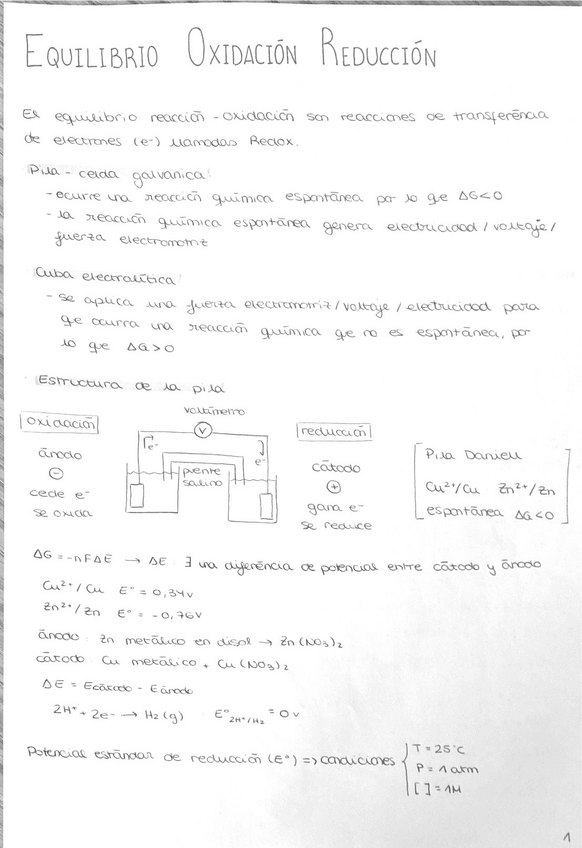 EQUILIBRIO OXIDACIÓN REDUCCIÓN
El equilibrio reacción-oxidación son reacciones de transferencia
de electrones (e-) llamadas Redox.
Pila - celda galvánica:
- ocurre una reacción química espontánea por lo qe ΔG<0
- la reacción química espontánea genera electricidad / voltaje /
fuerza electromotriz
Cuba electralítica:
- se aplica una fuerza electromotriz / voltaje / electricidad para
qe ocurra una reacción química qe no es espontánea, por
lo qe ΔG>0
Estructura de la pila
voltímetro
oxidación
V
reducción
ánodo
e-
e-
puente
salino
cátodo
Pila Daniell
⊖
⊕
Cu²⁺/Cu Zn²⁺/Zn
cede e-
gana e-
espontánea ΔG<0
se oxida
se reduce
ΔG = -nFΔE → ΔE: ∃ una diferencia de potencial entre cátodo y ánodo
Cu²⁺/Cu E° = 0,34v
Zn²⁺/Zn E° = -0,76v
ánodo: Zn metálico en disol → Zn(NO₃)₂
cátodo: Cu metálico + Cu(NO₃)₂
ΔE = Ecátodo - Eánodo
2H⁺ + 2e- → H₂(g) E°2H⁺/H₂ = 0v
Potencial estándar de reducción (E°) => condiciones
T = 25°C
P = 1 atm
[ ] = 1M
1